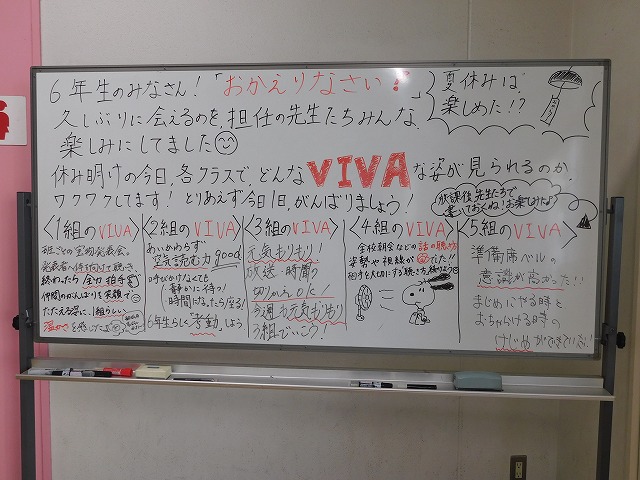 6年生のみなさん!「おかえりなさい!」
夏休みは、
楽しめた!?
久しぶりに会えるのを、担任の先生たちみんな、
楽しみにしてました
休み明けの今日、各クラスで、どんなVIVAな姿が見られるのか、
ワクワクしてます!とりあえず今日1日、がんばりましょう!
放課後、先生たちで
書いておくね!お楽しみに♪
<1組のVIVA>
班ごとの宝物発表会。
発表者へ体を向けて聴き、
終わったら全力拍手
仲間のがんばりを笑顔で
たたえる姿に、1組らしい
温かさを感じたよ
<2組のVIVA>
あいかわらず
空気読む力good
呼びかけなくても
静かに待つ!
時間になったら座る!
6年生らしく「考動」しよう
<3組のVIVA>
元気もりもり!
放送・時間の
切りかえ◎た!
今週も元気もりもり
3組でいこう!
<4組のVIVA>
全校朝会などの話の聴き方
姿勢や視線が
相手を大切にする聴き方
<5組のVIVA>
準備席ベルの
意識が高かった!!
まじめにやる時と
おちゃらける時の
けじめができている!